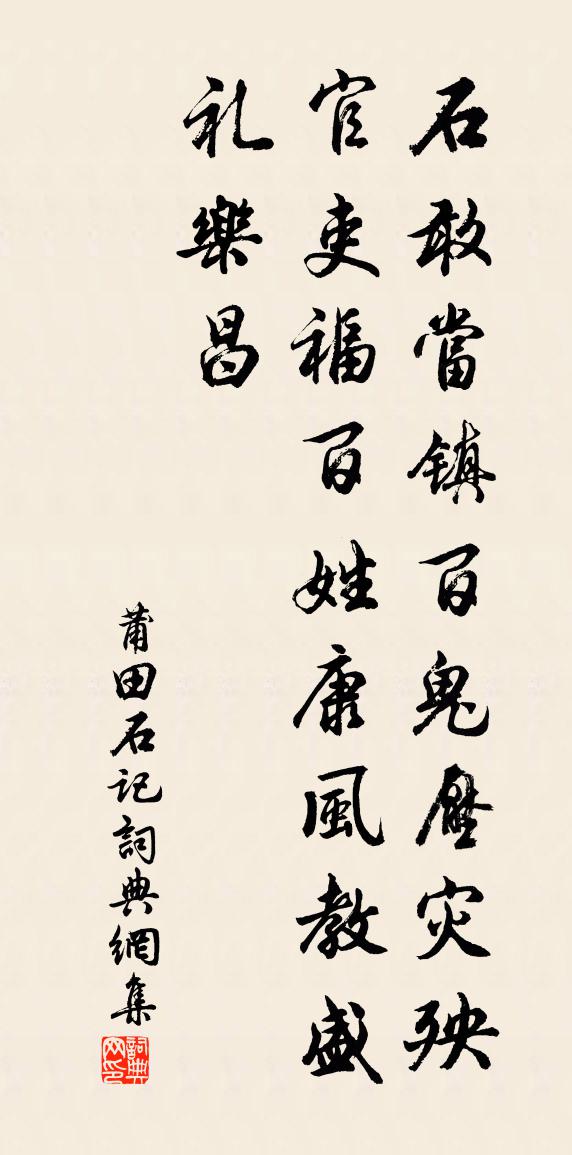 石敢當镇百鬼壓灾殃
官吏福百姓康風教盛
礼樂昌
莆田石记詞典網集
詞典网印